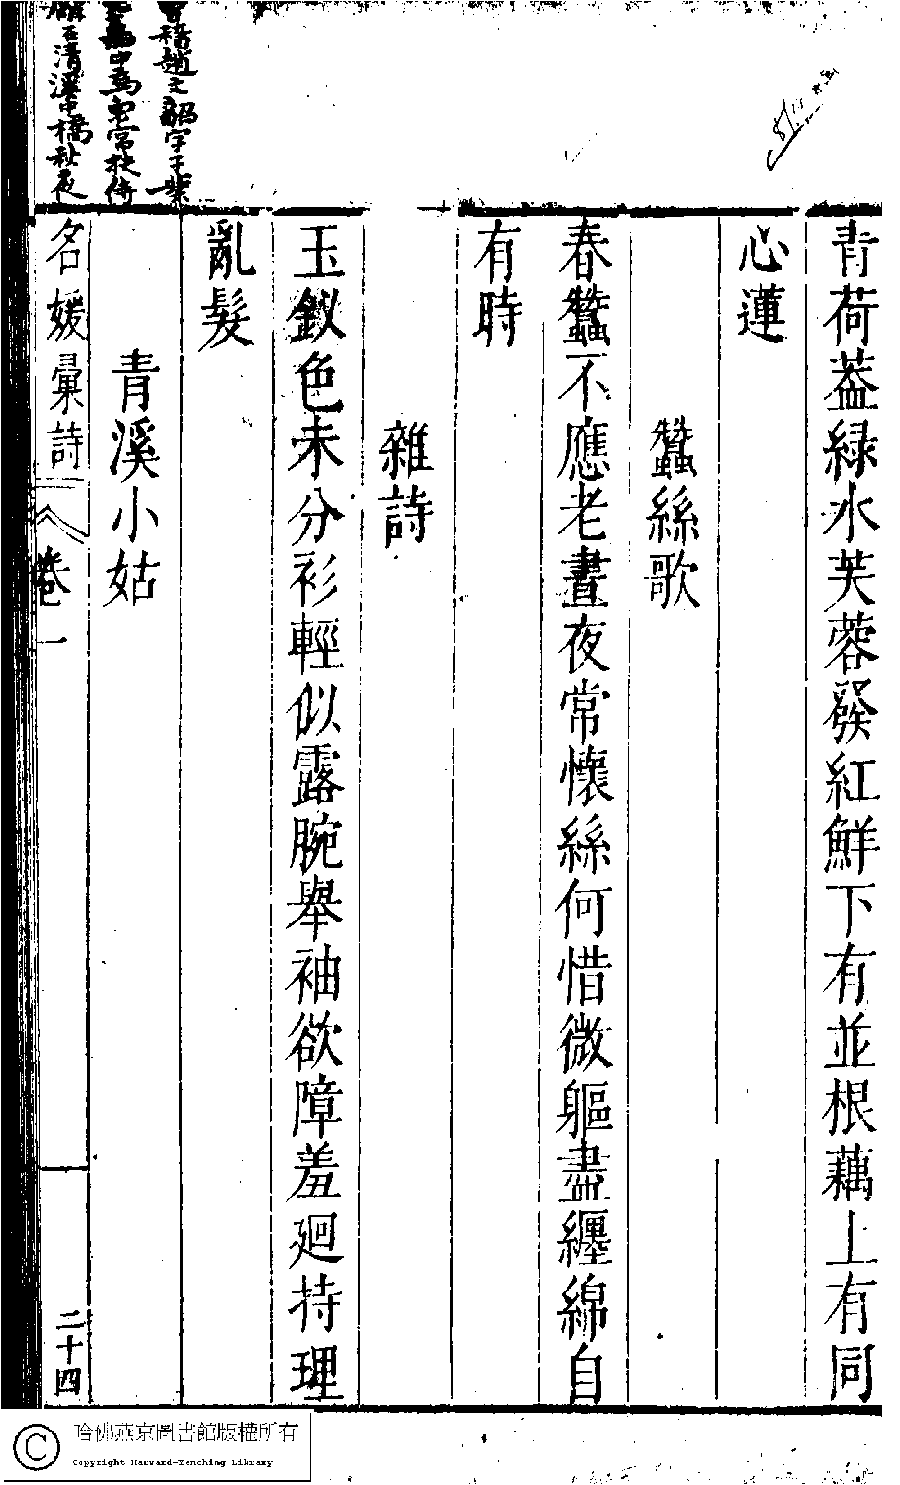 青荷葢緑水芙蓉發紅鮮下有並根藕上有同
心蓮
蠶絲歌
春蠶不應老晝夜常懷絲何惜微軀盡纏綿自
有時
雜詩
玉釵色未分衫輕似露腕舉袖欲障羞廻持理
亂髮
青溪小姑
名媛彙詩
卷一
二十四
趙文韶字子
清溪中橋秋夜
哈佛燕京圖書館版權所有
Copyright Harvard-Yenching Library